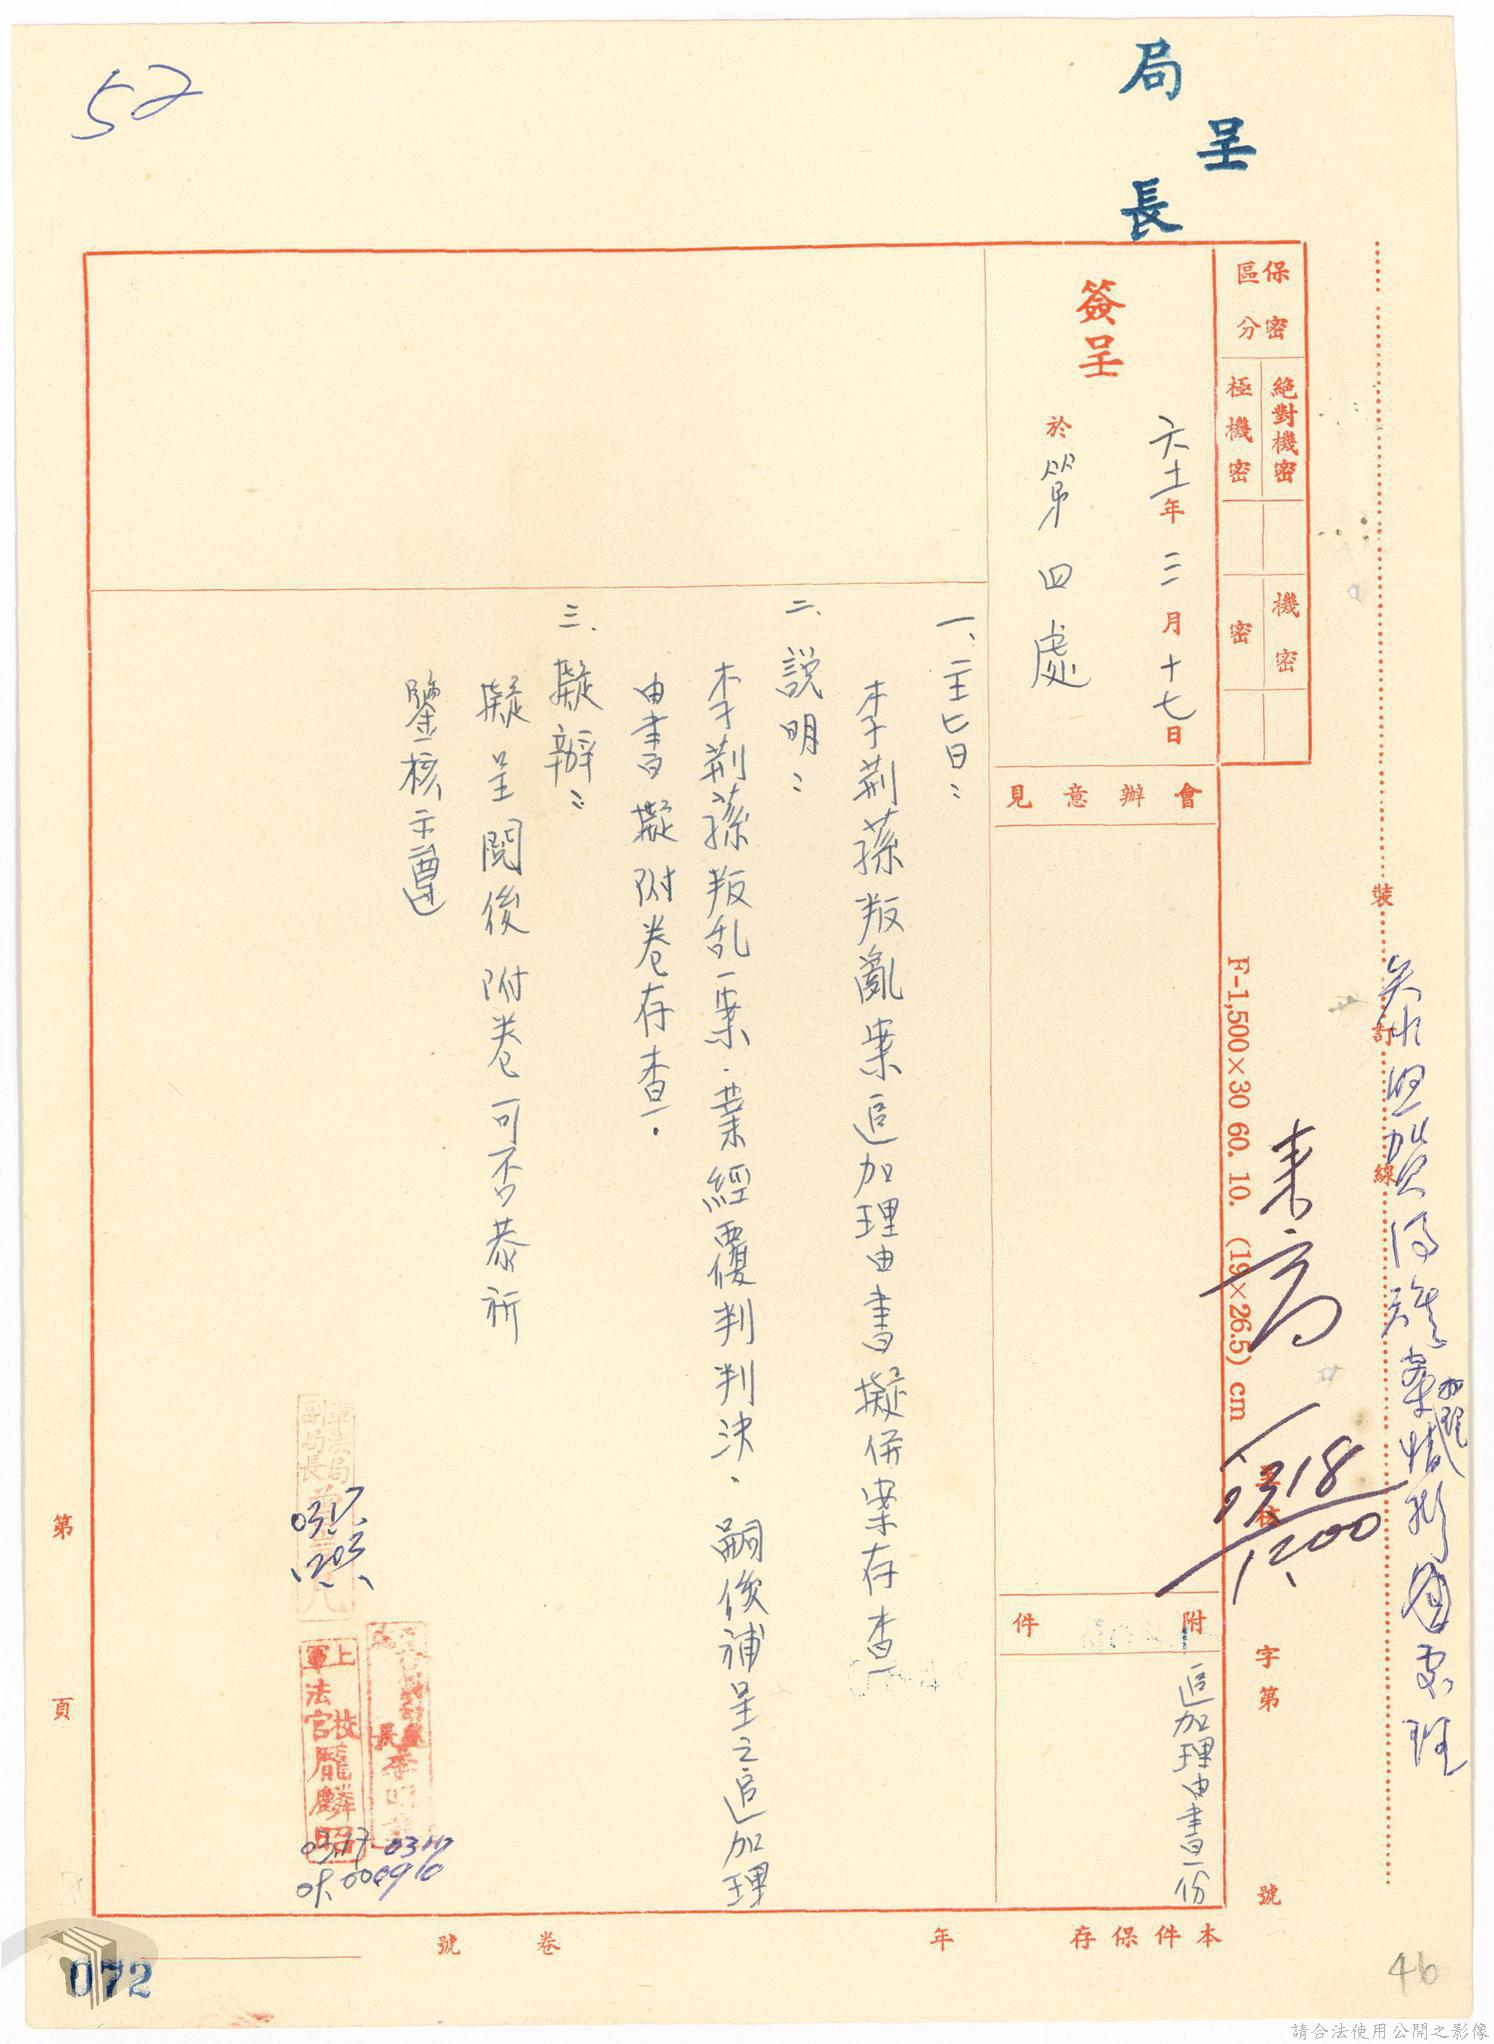 52
呈
局長
保密區分
絕對機密
極機密
機密
密
裝訂線
簽呈
六十一年三月十七日
於第四處
會辦意見
F-1,500×30 60. 10. (19×26.5) cm
0318
1200
字第
號
附件
追加理由書一份
一、主旨：
李荊蓀叛亂案追加理由書擬併案存查
二、說明：
李荊蓀叛乱一案，業經覆判判決，嗣後補呈之追加理
由書擬附卷存查。
三、擬辦：
擬呈閱後附卷可否恭祈
鑒核示遵
軍法局副局長
0317
1203
上校軍法官龎麟昭
0317
0317
0910
第
頁
本件保存
年
卷
號
072
46
請合法使用公開之影像